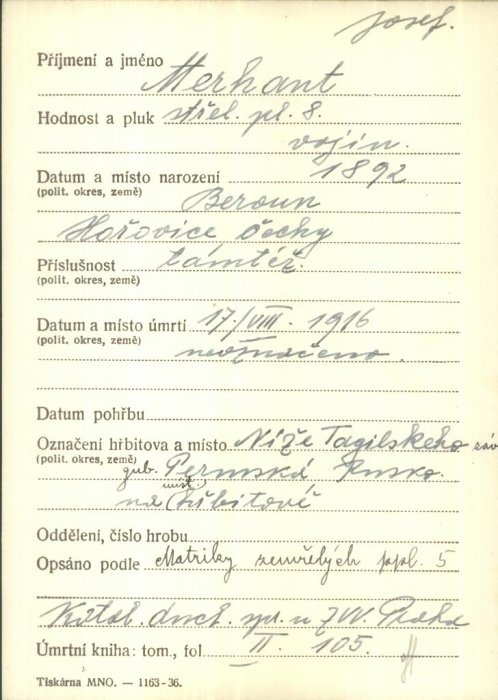 Josef.
Příjmení a jméno Merhant
Hodnost a pluk střel. pl. 8.
vojín.
Datum a místo narození 1892
(polit. okres, země)
Beroun
Hořovice Čechy
Příslušnost tamtéž.
(polit. okres, země)
Datum a místo úmrtí 17./VIII. 1916
(polit. okres, země)
neoznačeno.
Datum pohřbu
Označení hřbitova a místo Níže Tagilského záv
(polit. okres, země)
gub. Permská Rusko.
na (míst.) hřbitově
Oddělení, číslo hrobu
Opsáno podle Matriky zemřelých ppl. 5
Katol. duch. spr. u ZVV. Praha
Úmrtní kniha: tom., fol. II. 105.
Tiskárna MNO. — 1163-36.